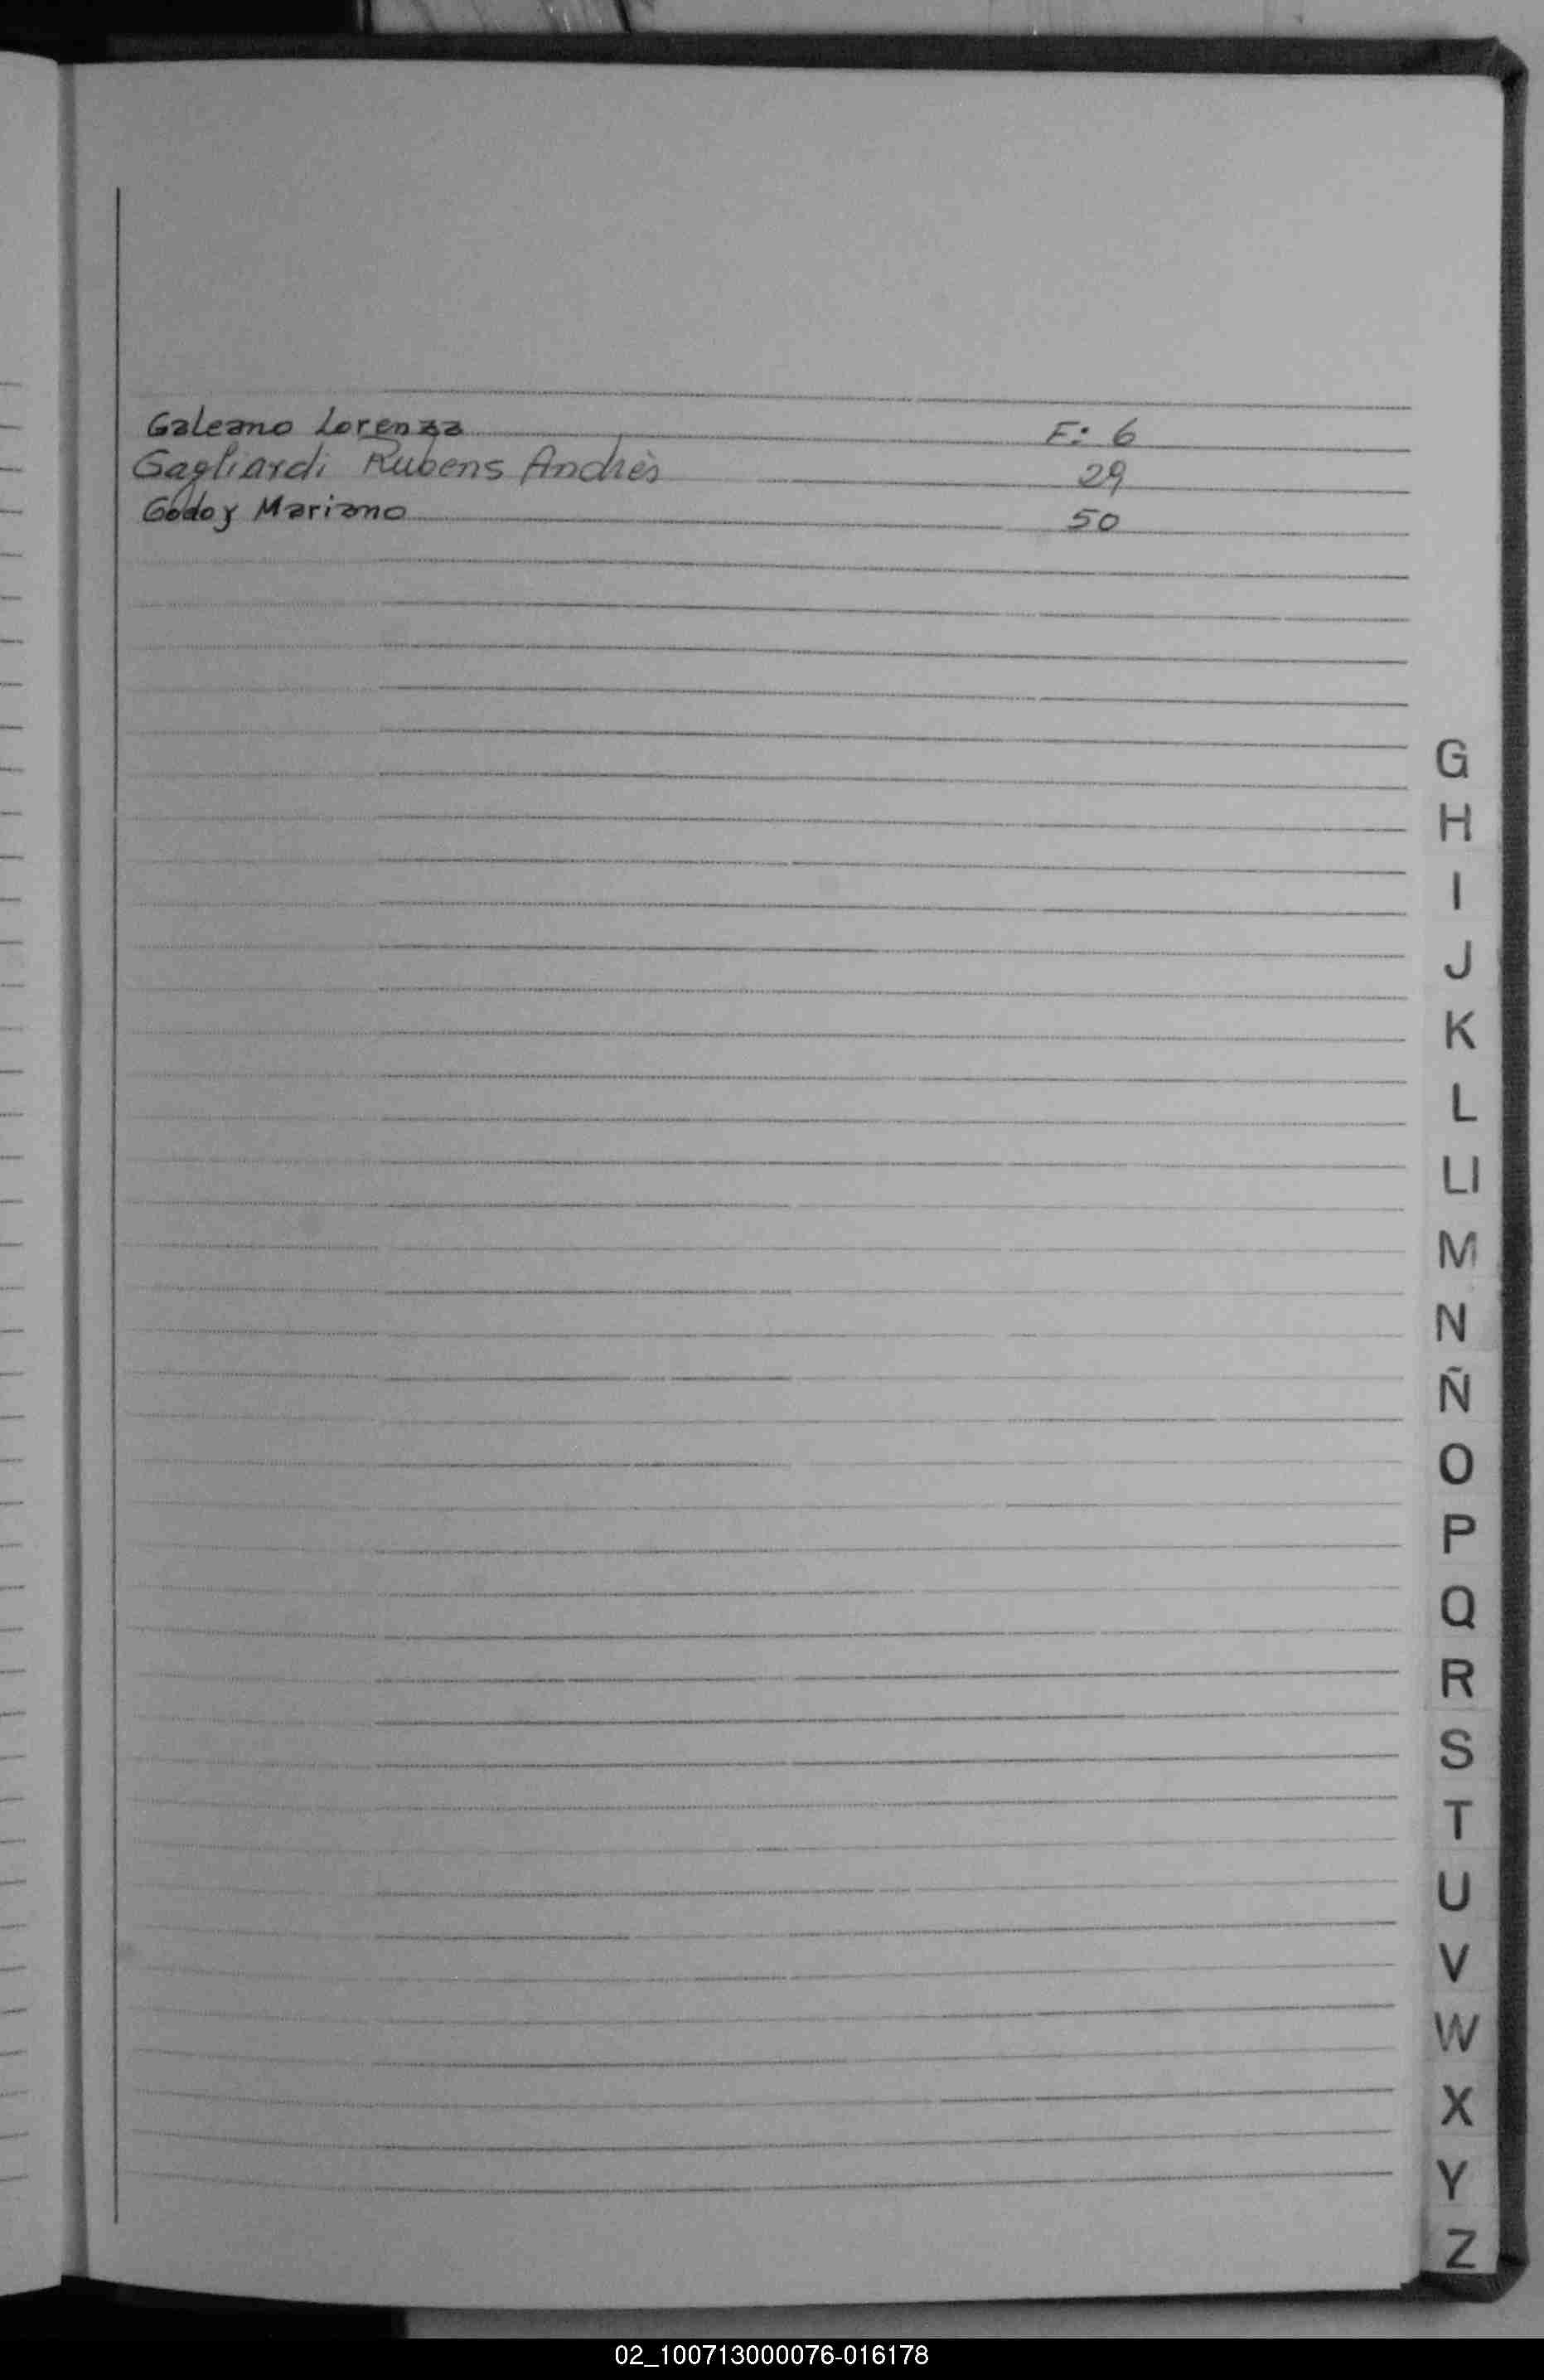 Galeano Lorenza F: 6
Gagliardi Rubens Andrès 29
Godoy Mariano 50
G
H
I
J
K
L
Ll
M
N
Ñ
O
P
Q
R
S
T
U
V
W
X
Y
Z
02_100713000076-016178